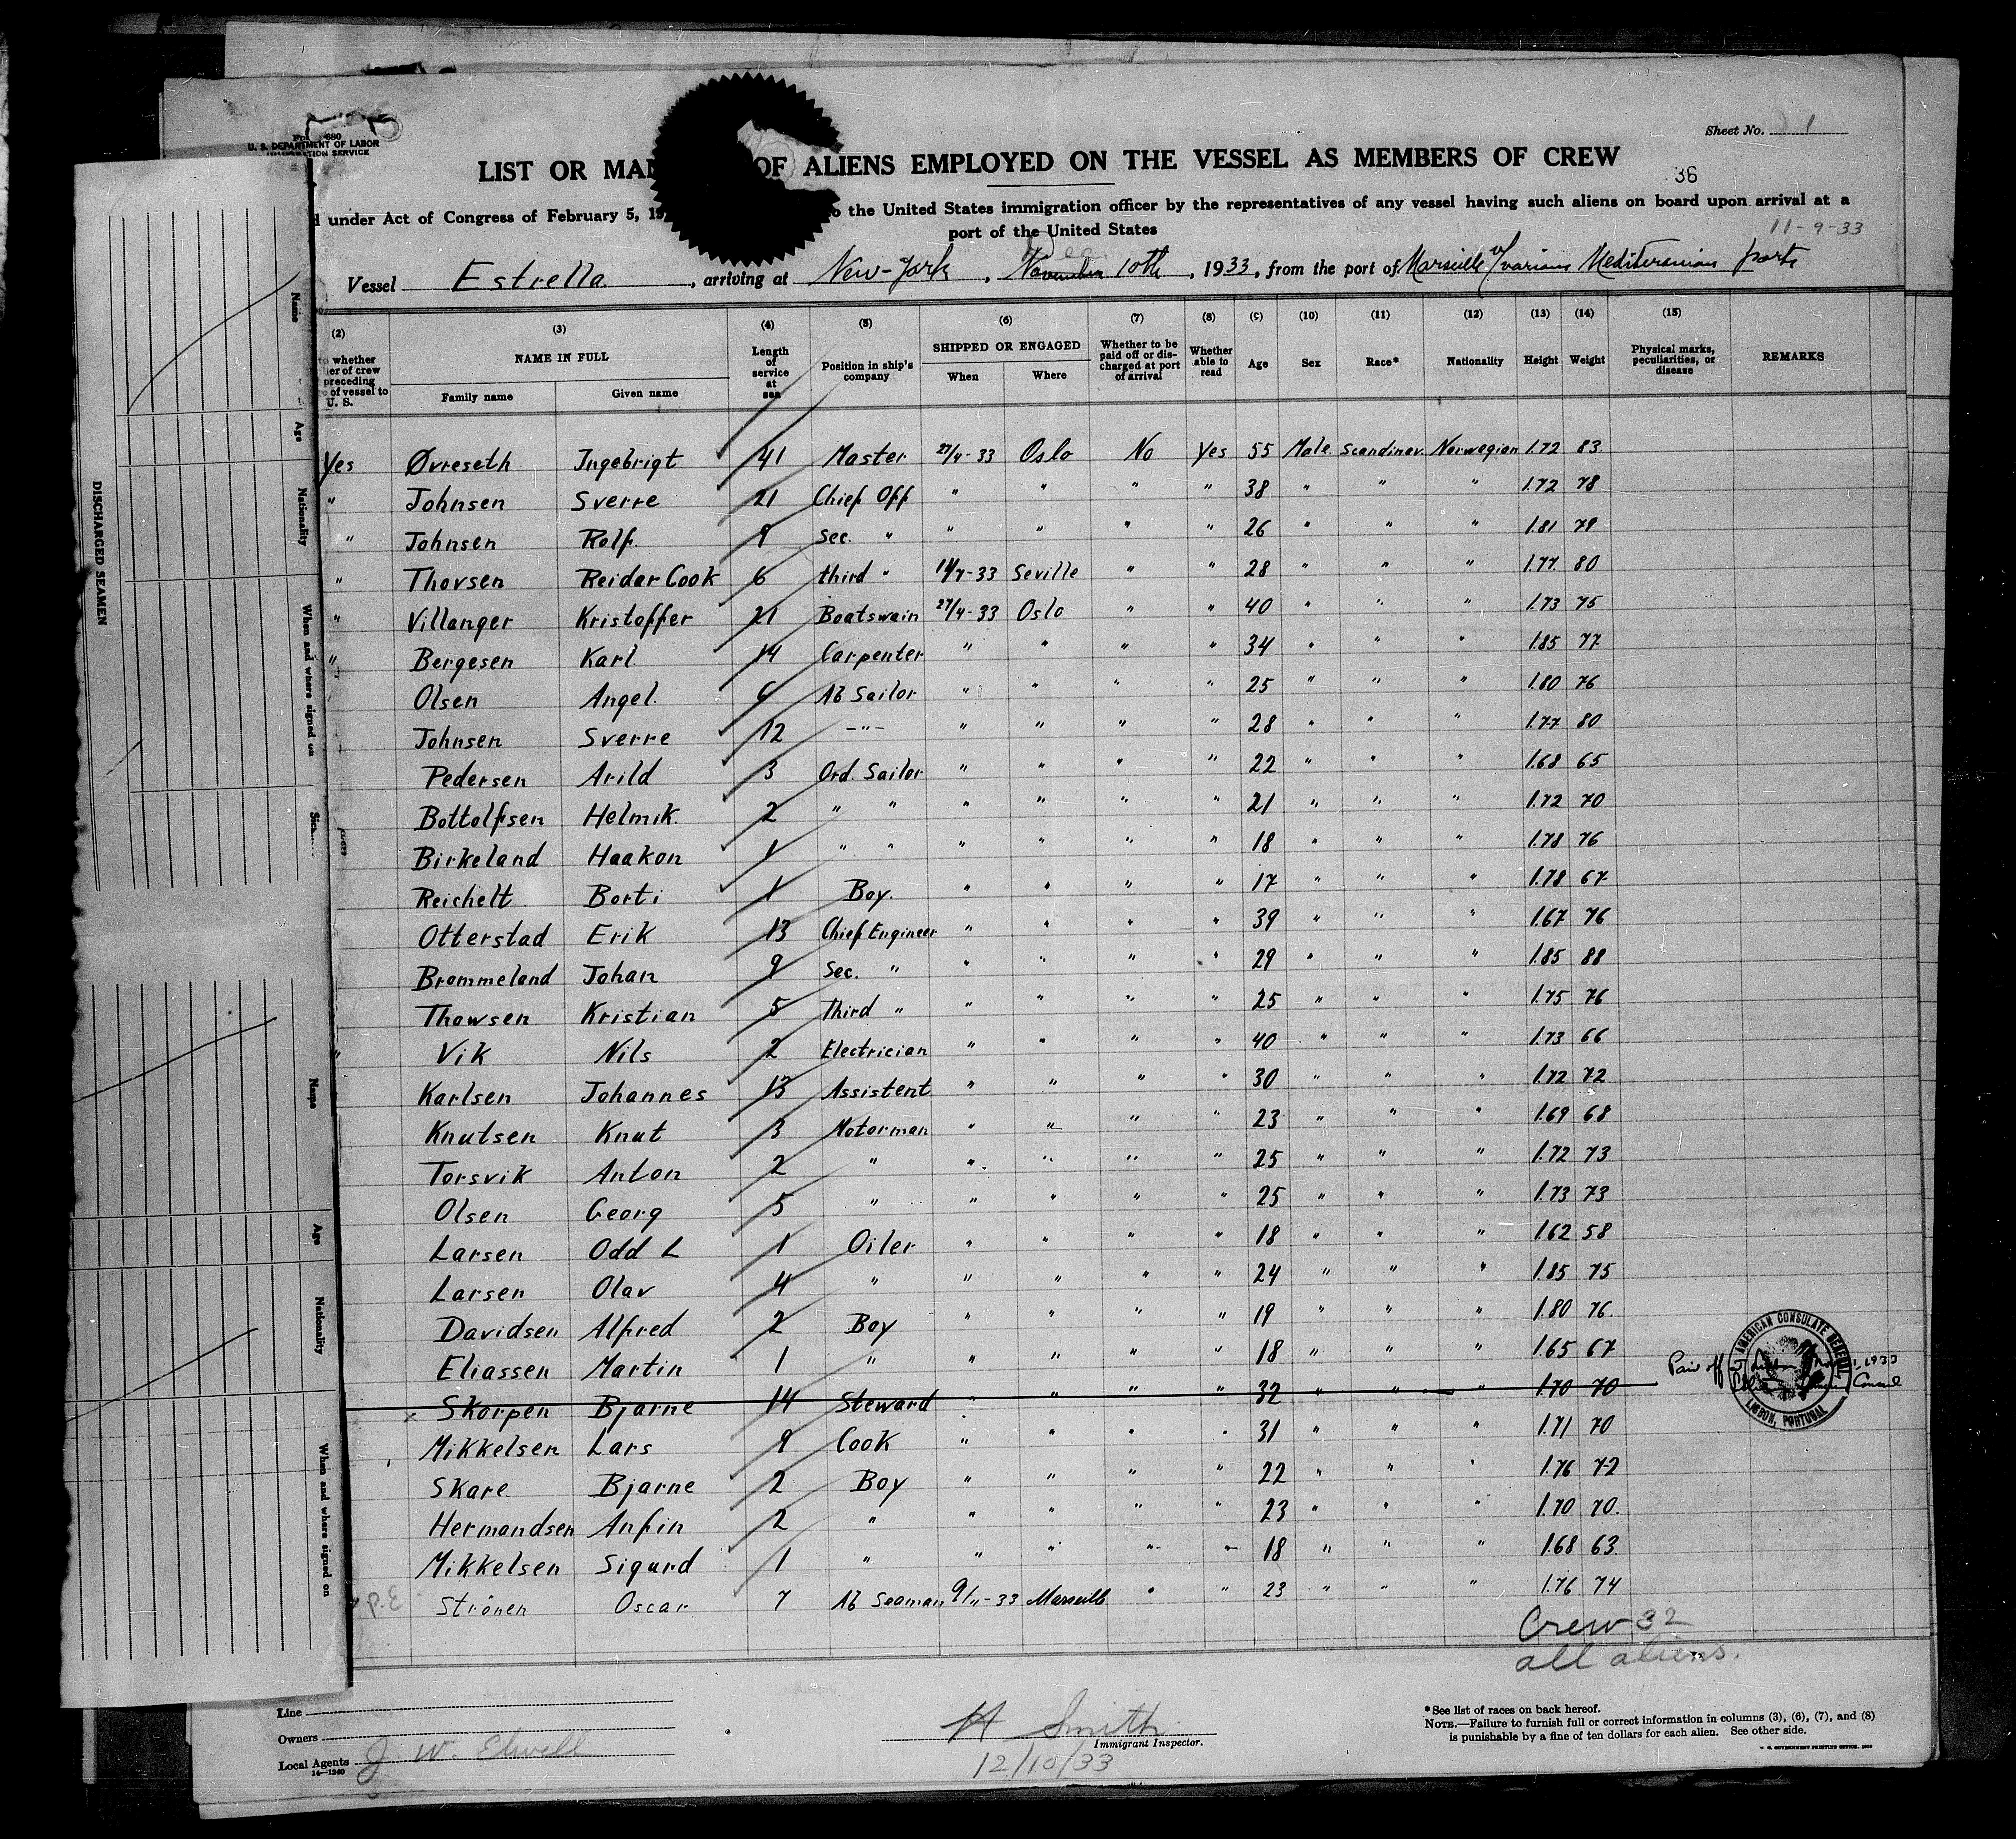 Sheet No. 1
U. S. DEPARTMENT OF LABOR
LIST OR MAN OF ALIENS EMPLOYED ON THE VESSEL AS MEMBERS OF CREW
36
under Act of Congress of February 5, 19 the United States immigration officer by the representatives of any vessel having such aliens on board upon arrival at a
port of the United States
11-9-33
Dec
Vessel Estrella, arriving at New-York, November 10th, 1933, from the port of Marseille various Mediteranian ports
(2) (3) (4) (5) (6) (7) (8) (10) (11) (12) (13) (14) (15)
whether of crew preceding of vessel to U. S.
NAME IN FULL
Family name Given name
Length of service at sea
Position in ship's company
SHIPPED OR ENGAGED
When Where
Whether to be paid off or discharged at port of arrival
Whether able to read
Age Sex Race* Nationality Height Weight
Physical marks, peculiarities, or disease
REMARKS
Yes Øvreseth Ingebrigt 41 Master 27/4-33 Oslo No Yes 55 Male Scandinav. Norwegian 1.72 83
" Johnsen Sverre 21 Chief Off " " " " 38 " " " 1.72 78
" Johnsen Rolf. 9 Sec. " " " " " 26 " " " 1.81 79
" Thovsen Reidar Cook 6 third " 11/7-33 Seville " " 28 " " " 1.77 80
" Villanger Kristoffer 21 Boatswain 27/4-33 Oslo " " 40 " " " 1.73 75
" Bergesen Karl 14 Carpenter " " " " 34 " " " 1.85 77
Olsen Angel. 6 AB Sailor " " " " 25 " " " 1.80 76
Johnsen Sverre 12 -"- " " " " 28 " " " 1.77 80
Pedersen Arild 3 Ord. Sailor " " " " 22 " " " 1.68 65
Bottolfsen Helmik. 2 " " " " " " 21 " " " 1.72 70
Birkeland Haakon 1 " " " " " " 18 " " " 1.78 76
Reichelt Borti 1 Boy. " " " " 17 " " " 1.78 67
Otterstad Erik 13 Chief Engineer " " " " 39 " " " 1.67 76
Brommeland Johan 9 Sec. " " " " " 29 " " " 1.85 88
Thowsen Kristian 5 Third " " " " " 25 " " " 1.75 76
Vik Nils 2 Electrician " " " " 40 " " " 1.73 66
Karlsen Johannes 13 Assistent " " " " 30 " " " 1.72 72
Knutsen Knut 3 Motorman " " " " 23 " " " 1.69 68
Torsvik Anton 2 " " " " " 25 " " " 1.72 73
Olsen Georg 5 " " " " " 25 " " " 1.73 73
Larsen Odd L 1 Oiler " " " " 18 " " " 1.62 58
Larsen Olav 4 " " " " " 24 " " " 1.85 75
Davidsen Alfred 2 Boy " " " " 19 " " " 1.80 76
Eliassen Martin 1 " " " " " 18 " " " 1.65 67
Skorpen Bjarne 14 Steward " " " " 32 " " " 1.70 70 Paid off 1933 Consul
AMERICAN CONSULATE GENERAL LISBON, PORTUGAL
Mikkelsen Lars 9 Cook " " " " 31 " " " 1.71 70
Skare Bjarne 2 Boy " " " " 22 " " " 1.76 72
Hermandsen Anfin 2 " " " " " 23 " " " 1.70 70.
Mikkelsen Sigurd 1 " " " " " 18 " " " 1.68 63
" P.E Strönen Oscar 7 AB Seaman 9/11-33 Marseille " " 23 " " " 1.76 74
Crew 32
all aliens.
Line
Owners
Local Agents J W. Elwell
14-1240
H Smith
Immigrant Inspector.
12/10/33
*See list of races on back hereof.
NOTE.—Failure to furnish full or correct information in columns (3), (6), (7), and (8)
is punishable by a fine of ten dollars for each alien. See other side.
DISCHARGED SEAMEN
Name
Age
Nationality
When and where signed on
Name
Age
Nationality
When and where signed on